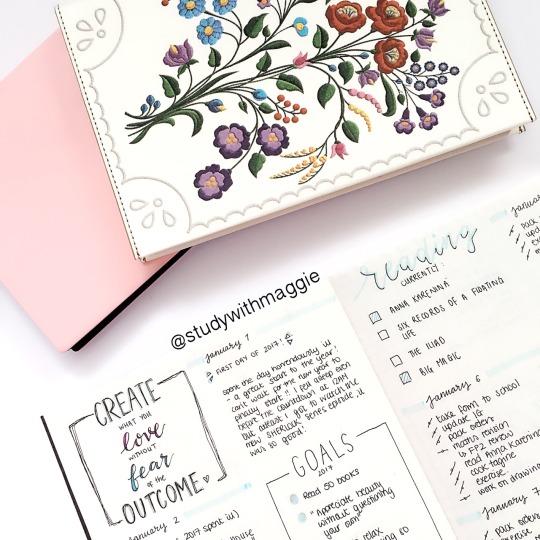 @studywithmaggie
CREATE
WHAT YOU
love
WITHOUT
fear
OF THE
OUTCOME
january 2
january 1
FIRST DAY OF 2017!
spent the day horrendously ill
- a great start to the year!
can't wait for the new year to
finally start!! i fell asleep even
before the countdown at 12AM
but atleast i got to watch the
new SHERLOCK series episode
was so good!
GOALS
2017
Read 50 books
"Appreciate beauty
without questioning
your own"
relax
reading
CURRENTLY:
ANNA KARENINA
SIX RECORDS OF A FLOATING
LIFE
THE ILIAD
BIG MAGIC
january 6
take form to school
update IG
pack orders
maths revision
FP2 review
read Anna Karenina
exercise
work on drawing
january 7
pack orders